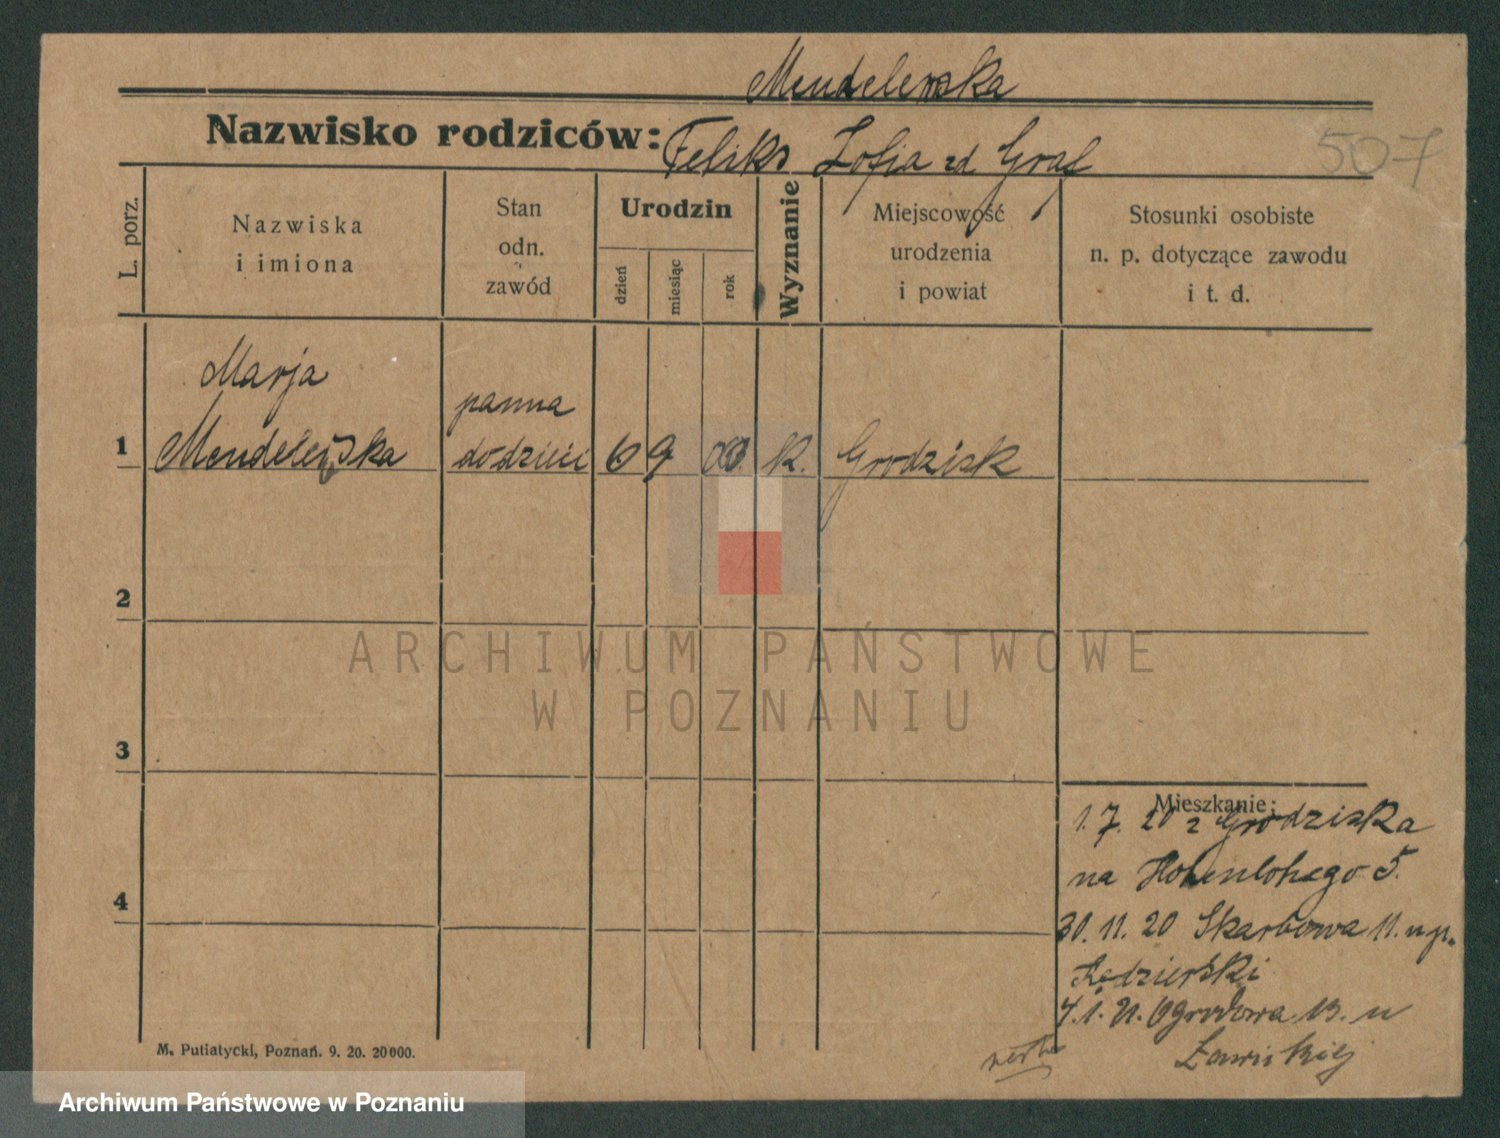 Mendelewska
Nazwisko rodziców: Feliks Zofia zd Graf
507
L. porz.
Nazwiska
i imiona
Stan
odn.
zawód
Urodzin
dzień
miesiąc
rok
Wyznanie
Miejscowość
urodzenia
i powiat
Stosunki osobiste
n. p. dotyczące zawodu
i t. d.
1
Marja
Mendelewska
panna
do dzieci
6
9
00
k.
Grodzisk
2
3
4
ARCHIWUM PAŃSTWOWE
W POZNANIU
Mieszkanie:
1. 7. 20 z Grodziska
na Hohenlohego 5.
30. 11. 20 Skarbowa 11. u p.
Kędzierski
7. 1. 21. Ogrodowa 13. u
M. Putiatycki, Poznań. 9. 20. 20000.
Archiwum Państwowe w Poznaniu